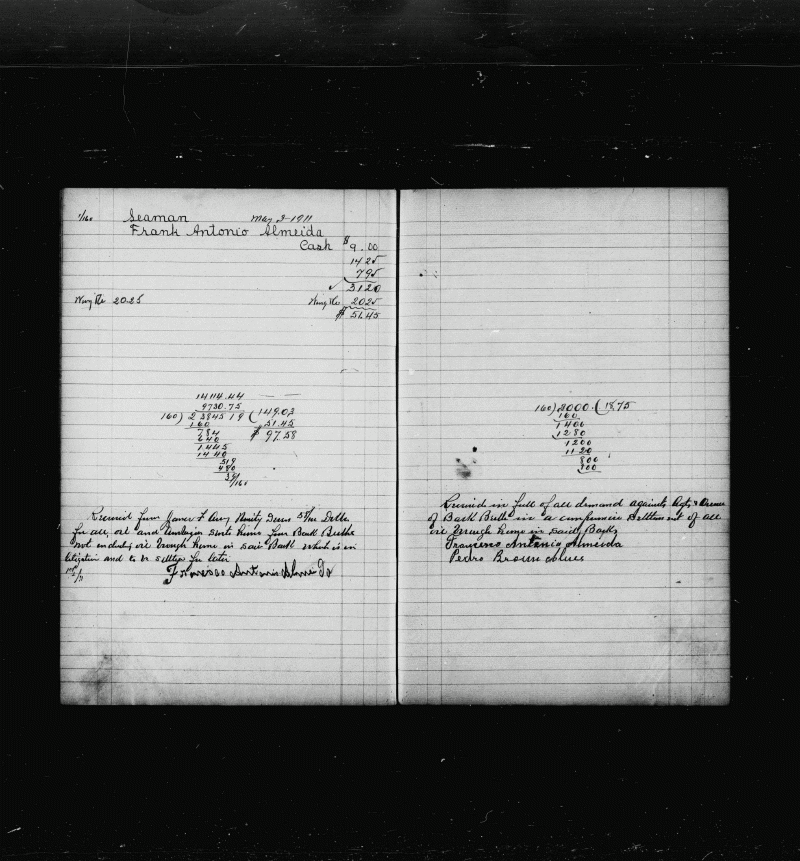 1/160 Seaman May 3-1911
Frank Antonio Almeida
Cash $ 9.00
1425
795
✓ 3120
20.25 2025
$ 51.45
1414.44
9730.75
160) 23845 19 (149.03
160 51.45
784 $ 97.58
640
1445
1440
519
480
39/160
Received from James F Avery Ninety Seven 58/100 Dolls
for all oil and bone Bark Bertha
not including oil brought home in said Bark which is in
litigation and to be settled for later
Francesco Antonio Almeida
160) 3000. (18.75
160
1400
1280
1200
1120
800
800
Received in full of all demand against Agts & Owners
of Bark Bertha in a compromise Settlement of all
oil brought home in said Bark
Francesco Antonio Almeida
Pedro Brown